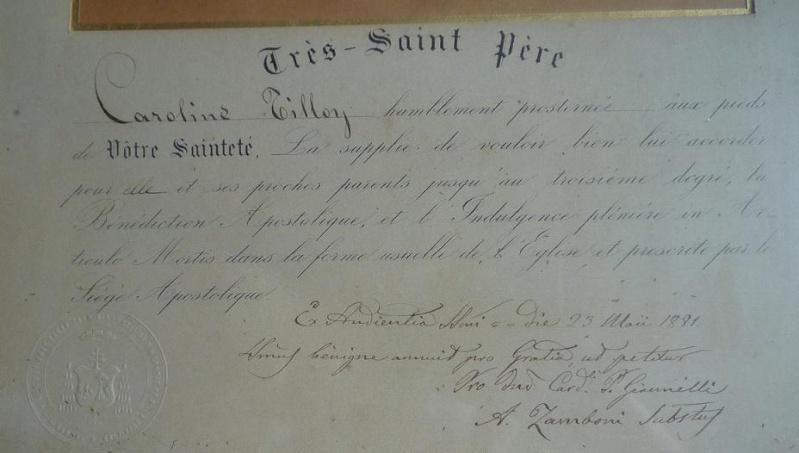 Très-Saint Père
Caroline Tilloy humblement prosternée aux pieds
de Vôtre Sainteté, La supplie de vouloir bien lui accorder
pour elle et ses proches parents jusqu'au troisième degré, la
Bénédiction Apostolique, et l'Indulgence plénière in Ar-
ticulo Mortis dans la forme usuelle de l'Eglise et prescrete par le
Siége Apostolique
Ex Audientia SSmi - die 23 Maii 1881
SSmus benigne annuit pro Gratia, ut petitur
Pro Card. P. Giannelli
A. Zamboni Substus